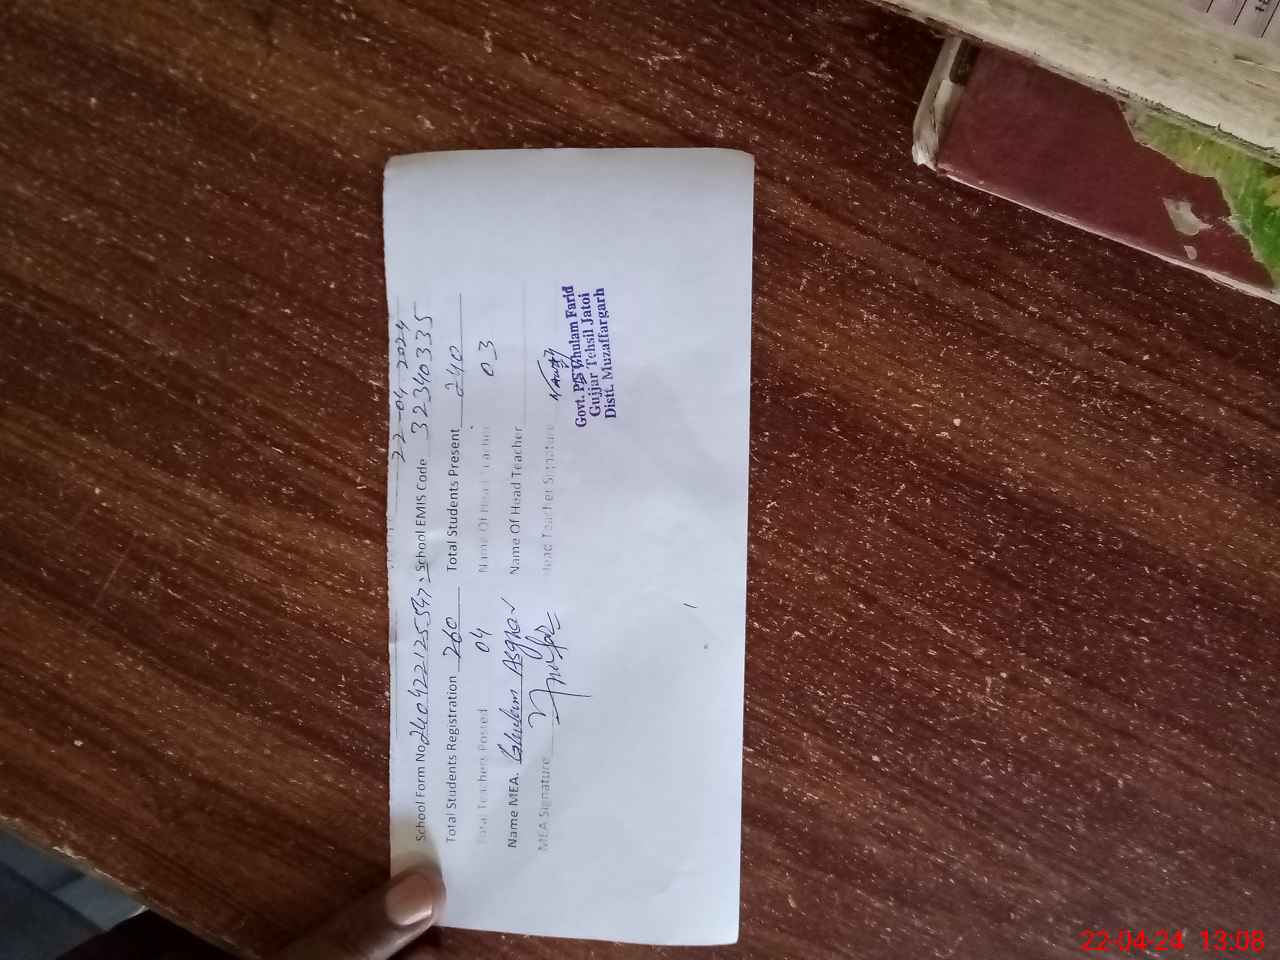 22-04 2024
School Form No School EMIS Code 32340335
Total Students Registration 260 Total Students Present 240
Total Teachers Posted 04 Name Of Head Teacher 03
Name MEA. Ghulam Asghar Name Of Head Teacher
MEA Signature Head Teacher Signature
Govt. P/S Ghulam Farid
Gujjar Tehsil Jatoi
Distt. Muzaffargarh
22-04-24 13:08